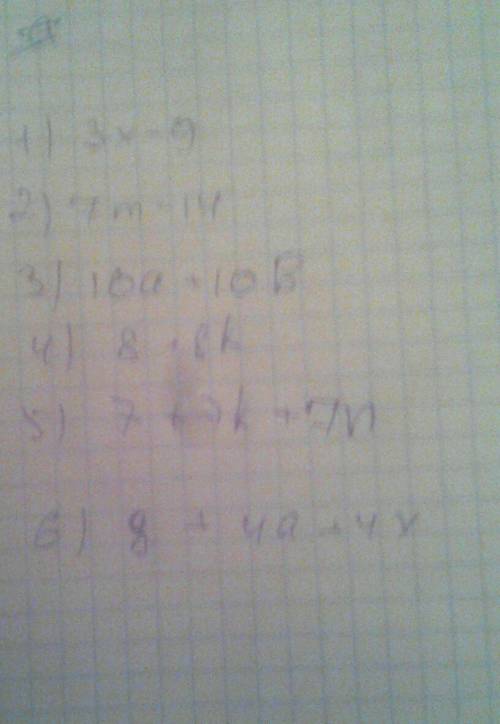 1) 3x - 9
2) 7m - 14
3) 10a + 10b
4) 8 + 8k
5) 7 + 7k + 7n
6) 8 + 4a + 4x